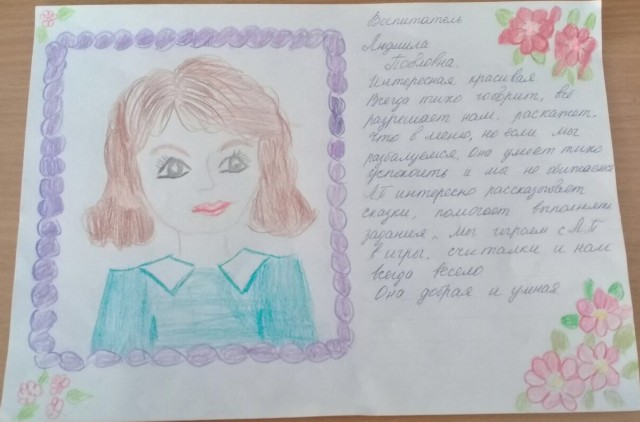 Воспитатель
Людмила
Павловна.
Интересная красивая
Всегда тихо говорит, всё
разрешает нам. расскажет,
что в меню, но если мы
разбалуемся, Она умеет тихо
успокоить и мы не обижаемся
ЛП интересно рассказывает
сказки, помогает выполнять
задания, мы играем с Л.П
в игры, считалки и нам
всегда весело
Она добрая и умная